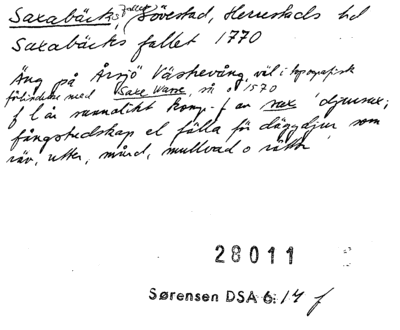 Saxabäck, fallet, Sövestad, Herrestads hd
Saxabäcks fallet 1770
Äng på Årsjö Västrevång, väl i topografisk
förbindelse med Saxe Warre, 1570
f l är sannolikt komp. f av sax 'djursax;
fångstredskap el fälla för däggdjur som
räv, utter, mård, mullvad o råtta'
28011
Sørensen DSA 6:14 f